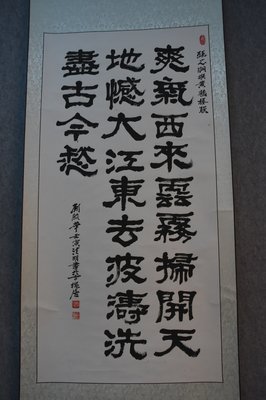 張之洞撰黃鶴樓联
爽氣西來雲霧掃開天
地憾大江東去波濤洗
盡古今愁